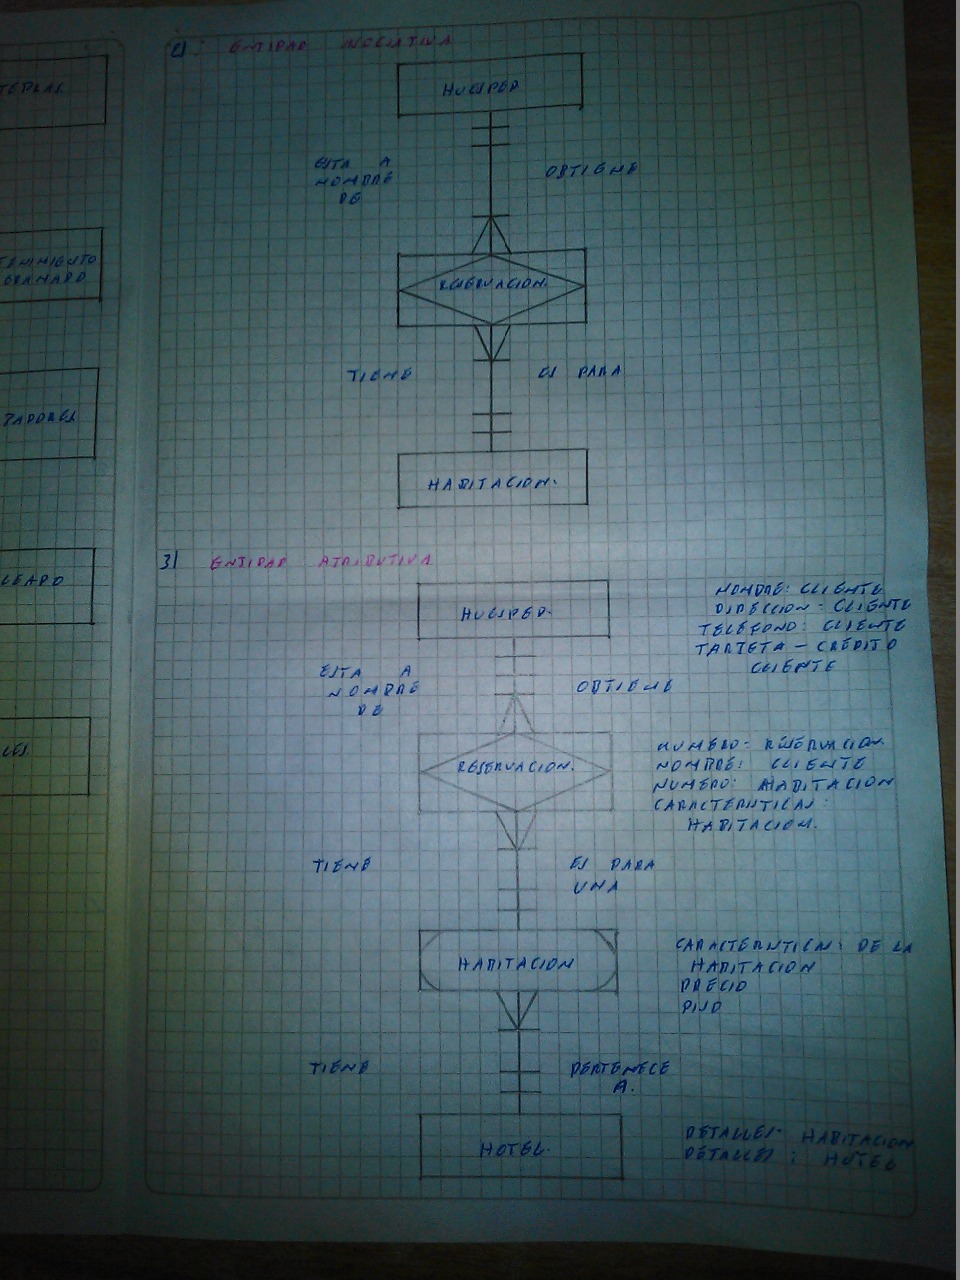 TEPLAS
TENIMIENTO
ORANADO
PADORES
LEADO
LES
2) ENTIDAD INOCIATIVA
HUESPED
ESTA A
NOMBRE
DE
OBTIENE
RESERVACION.
TIENE
ES PARA
HABITACION.
3) ENTIDAD ATRIBUTIVA
HUESPED.
NOMBRE: CLIENTE
DIRECCION: CLIENTE
TELEFONO: CLIENTE
TARJETA - CREDITO
CLIENTE
ESTA A
NOMBRE
DE
OBTIENE
RESERVACION.
NUMERO: RESERVACION
NOMBRE: CLIENTE
NUMERO: HABITACION
CARACTERISTICAS:
HABITACION.
TIENE
ES PARA
UNA
HABITACION
CARACTERISTICAS: DE LA
HABITACION
PRECIO
PISO
TIENE
PERTENECE
A.
HOTEL.
DETALLES: HABITACION
DETALLES: HOTEL